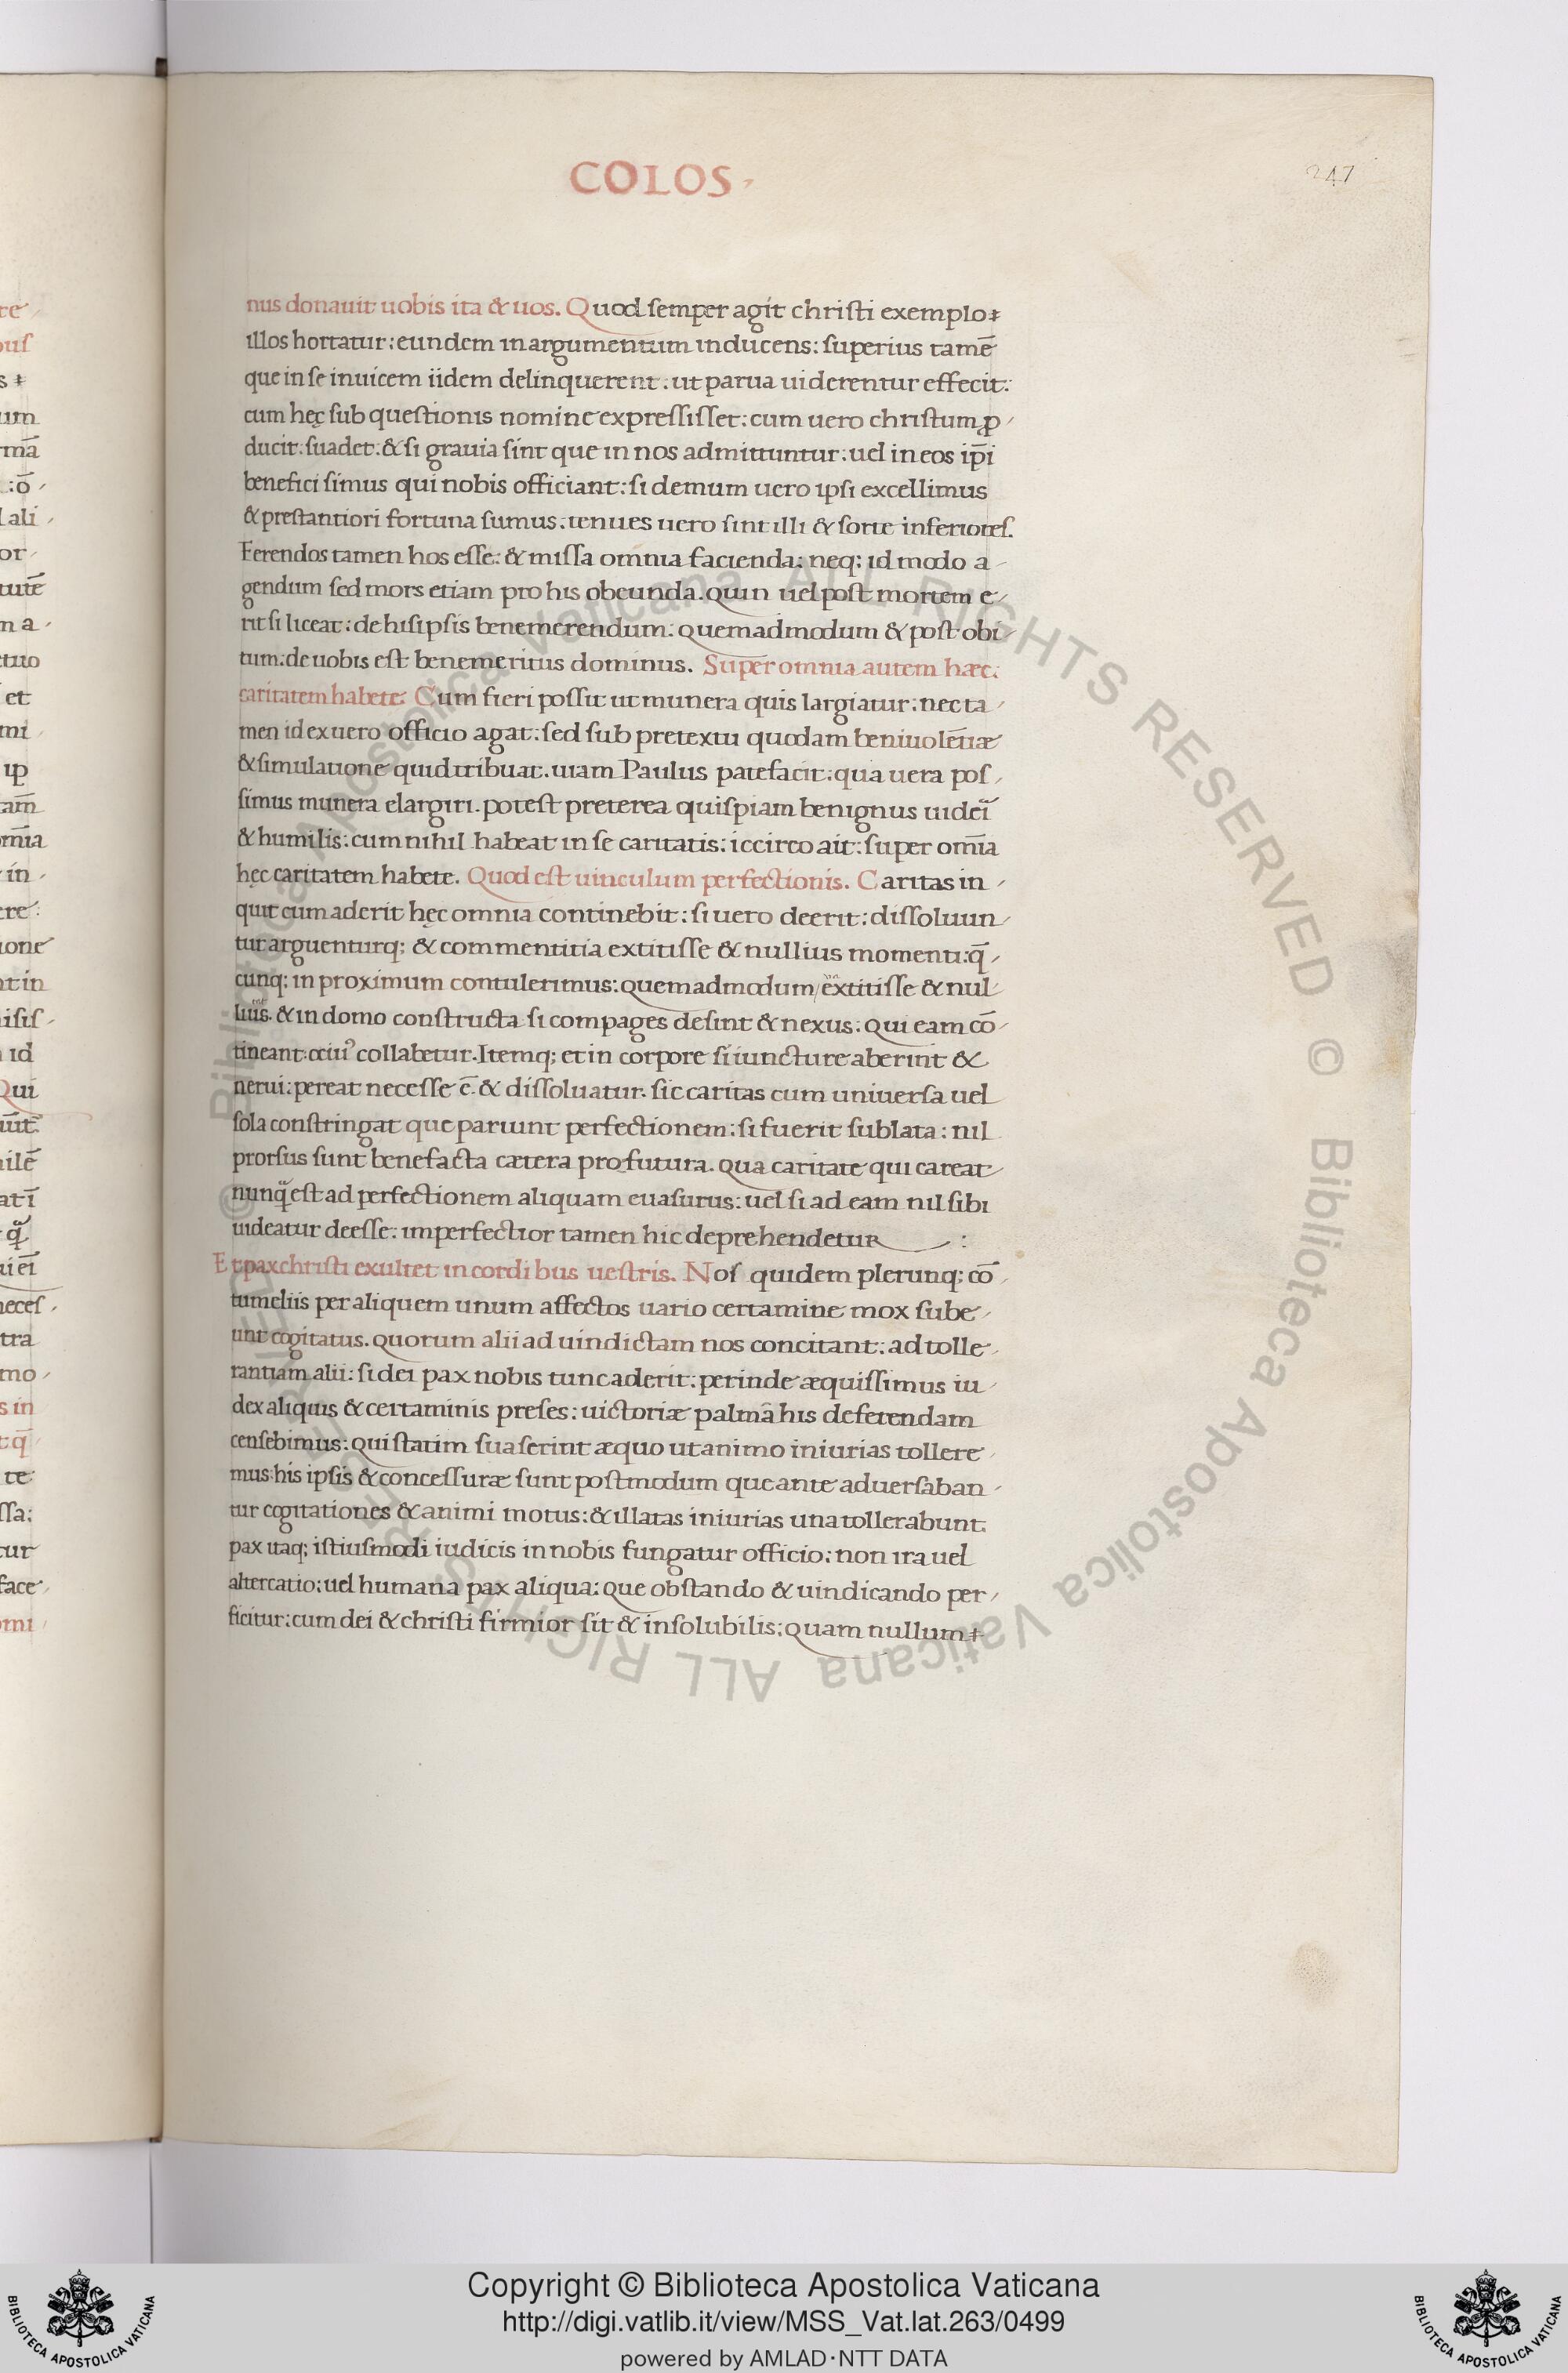 COLOS
247
nus donauit uobis ita & uos. Quod semper agit christi exemplo
illos hortatur: eundem in argumentum inducens: superius tamē
que in se inuicem iidem delinquerent. ut parua uiderentur effecit:
cum hęc sub questionis nomine expressisset: cum uero christum ꝓ
ducit: suadet: & si grauia sint que in nos admittuntur: uel in eos ip̄i
benefici simus qui nobis officiant: si demum uero ipsi excellimus
& prestantiori fortuna sumus. tenues uero sint illi & sorte inferiores.
Ferendos tamen hos esse: & missa omnia facienda: neq; id modo a
gendum sed mors etiam pro his obeunda. quin uel post mortem e
rit si liceat: de his ipsis benemerendum: quemadmodum & post obi
tum: de uobis est benemeritus dominus. Super omnia autem hæc:
caritatem habete. Cum fieri possit ut munera quis largiatur: nec ta
men id ex uero officio agat: sed sub pretextu quodam beniuolētiæ
& simulatione quid tribuat. uiam Paulus patefacit: qua uera pos
simus munera elargiri. potest preterea quispiam benignus uideri
& humilis: cum nihil habeat in se caritatis: iccirco ait: super om̄ia
hęc caritatem habete. Quod est uinculum perfectionis. Caritas in
quit cum aderit hęc omnia continebit: si uero deerit: dissoluun
tur arguenturq; & commentitia extitisse & nullius momenti: q̄
cunq; in proximum contulerimus: quemadmodum extitisse & nul
lius. & in domo constructa si compages desint & nexus: qui eam cō
tineant: collabetur. Itemq; et in corpore si iuncture aberint &
nerui: pereat necesse ē. & dissoluatur. sic caritas cum uniuersa uel
sola constringat que pariunt perfectionem: si fuerit sublata: nil
prorsus sunt benefacta cætera profutura. qua caritate qui careat
nunq̄ est ad perfectionem aliquam euasurus: uel si ad eam nil sibi
uideatur deesse: imperfectior tamen hic deprehendetur :
Et pax christi exultet in cordibus uestris. Nos quidem plerunq; cō
tumeliis per aliquem unum affectos uario certamine mox sube
unt cogitatus. quorum alii ad uindictam nos concitant: ad tolle
rantiam alii: si dei pax nobis tunc aderit: perinde æquissimus iu
dex aliquis & certaminis preses: uictoriæ palmā his deferendam
censebimus: qui statim suaserint æquo ut animo iniurias tollere
mus: his ipsis & concessuræ sunt postmodum que ante aduersaban
tur cogitationes & animi motus: & illatas iniurias una tollerabunt.
pax itaq; istiusmodi iudicis in nobis fungatur officio: non ira uel
altercatio: uel humana pax aliqua: que obstando & uindicando per
ficitur: cum dei & christi firmior sit & insolubilis: quam nullum
© Biblioteca Apostolica Vaticana ALL RIGHTS RESERVED © Biblioteca Apostolica Vaticana ALL RIGHTS RESERVED
Copyright © Biblioteca Apostolica Vaticana
http://digi.vatlib.it/view/MSS_Vat.lat.263/0499
powered by AMLAD·NTT DATA
BIBLIOTECA APOSTOLICA VATICANA
BIBLIOTECA APOSTOLICA VATICANA